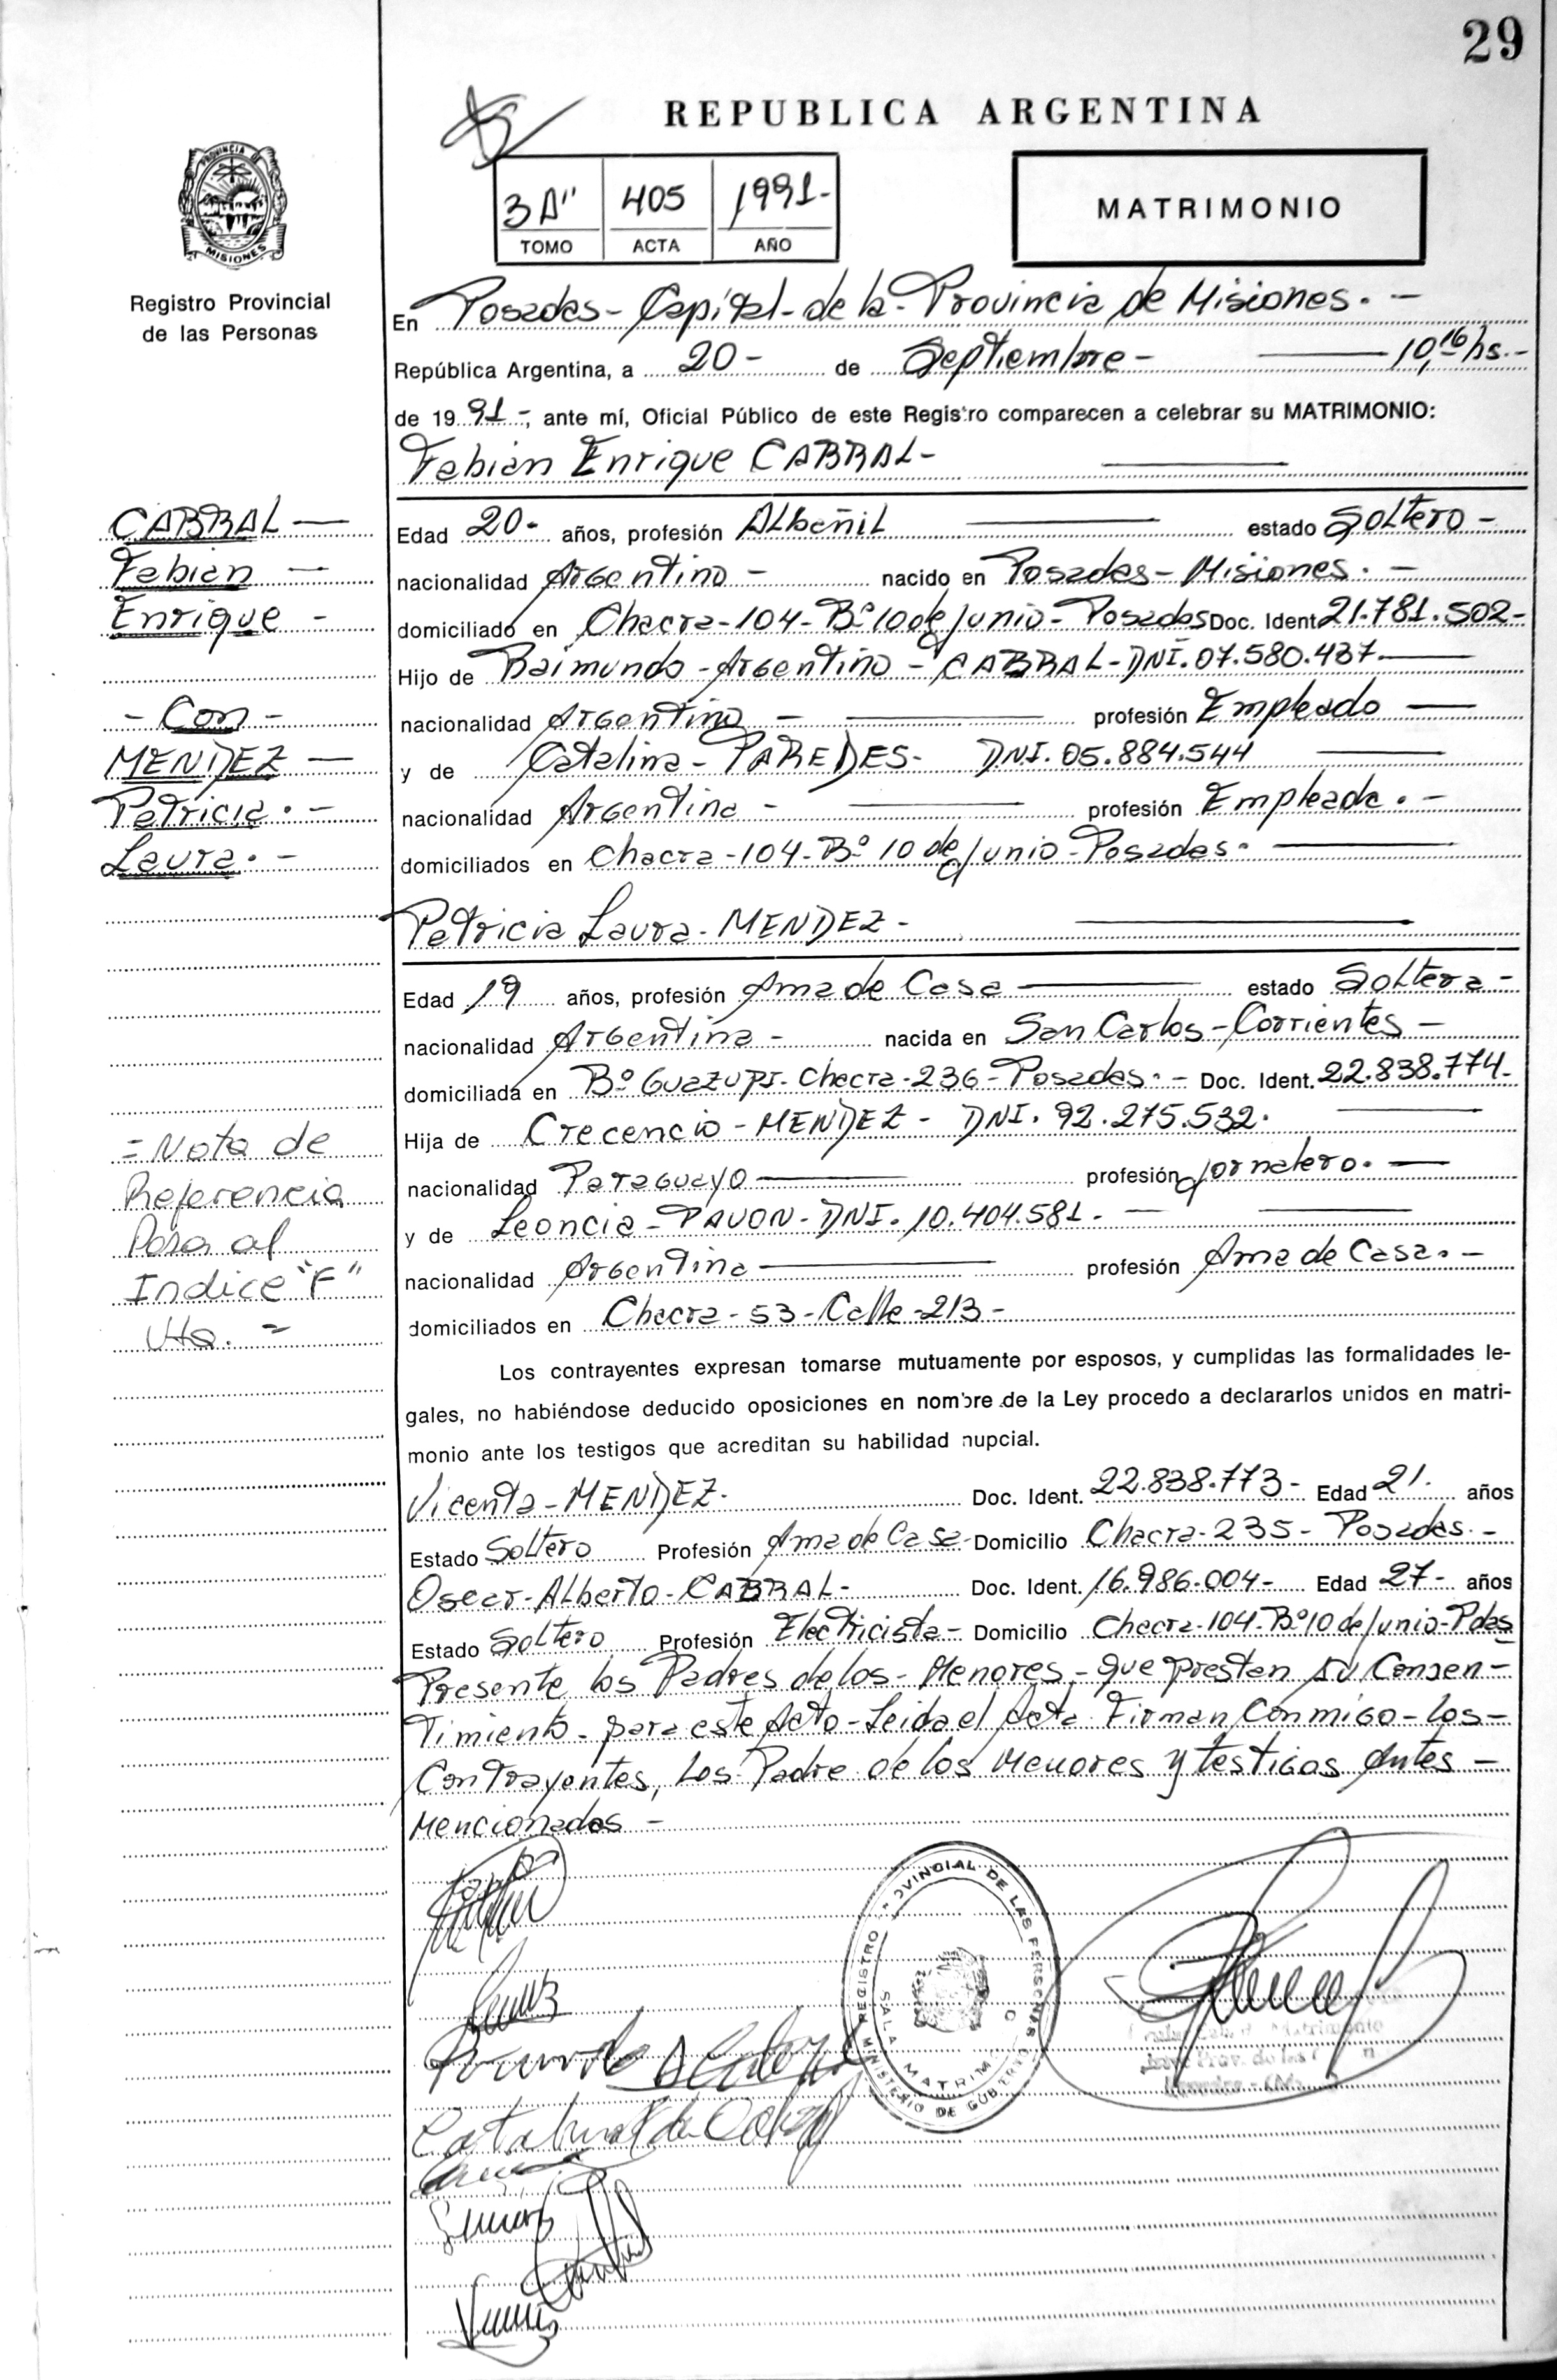 29
REPUBLICA ARGENTINA
3 A" 405 1991-
TOMO ACTA AÑO
MATRIMONIO
PROVINCIA DE
MISIONES
Registro Provincial
de las Personas
En Posadas - Capital - de la - Provincia de Misiones. -
República Argentina, a 20 - de Septiembre - 10,16 hs. -
de 1991 -, ante mí, Oficial Público de este Registro comparecen a celebrar su MATRIMONIO:
Fabian Enrique CABRAL -
CABRAL -
Fabian -
Enrique -
- Con -
MENDEZ -
Patricia. -
Laura. -
Edad 20 - años, profesión ALbañiL estado SoLtero -
nacionalidad Argentino - nacido en Posadas - Misiones. -
domiciliado en Chacra - 104 - Bº 10 de Junio - Posadas Doc. Ident 21.781.502 -
Hijo de Raimundo - Argentino - CABRAL - DNI. 07.580.437
nacionalidad Argentino - profesión Empleado
y de Catalina - PAREDES - DNI. 05.884.544
nacionalidad Argentina - profesión Empleada. -
domiciliados en Chacra - 104 - Bº 10 de Junio - Posadas -
Patricia Laura - MENDEZ -
Edad 19 años, profesión Ama de Casa estado SoLtera -
nacionalidad Argentina - nacida en San Carlos - Corrientes -
domiciliada en Bº Guazupi - Chacra - 236 - Posadas. - Doc. Ident. 22.838.774 -
Hija de Crecencio - MENDEZ - DNI. 92.275.532.
nacionalidad Paraguayo profesión Jornalero. -
y de Leoncia - PAVON - DNI. 10.404.581 -
nacionalidad Argentina profesión Ama de Casa. -
domiciliados en Chacra - 53 - Calle - 213 -
= Nota de
Referencia
Pasa al
Indice "F"
Uta. =
Los contrayentes expresan tomarse mutuamente por esposos, y cumplidas las formalidades le-
gales, no habiéndose deducido oposiciones en nombre de la Ley procedo a declararlos unidos en matri-
monio ante los testigos que acreditan su habilidad nupcial.
Vicenta - MENDEZ - Doc. Ident. 22.838.773 - Edad 21. años
Estado SoLtero Profesión Ama de Casa - Domicilio Chacra - 235 - Posadas. -
Oscar - ALberto - CABRAL - Doc. Ident. 16.986.004 - Edad 27 - años
Estado SoLtero Profesión Electricista - Domicilio Chacra - 104 - Bº 10 de Junio - Pdas
Presente los Padres de los - Menores - que presten su Consen-
timiento - para este Acto - Leida el Acta Firman Conmigo - los -
Contrayentes, Los Padre de los Menores y testigos Antes -
Mencionados -
REGISTRO PROVINCIAL DE LAS PERSONAS
MINISTERIO DE GOBIERNO
SALA MATRIM